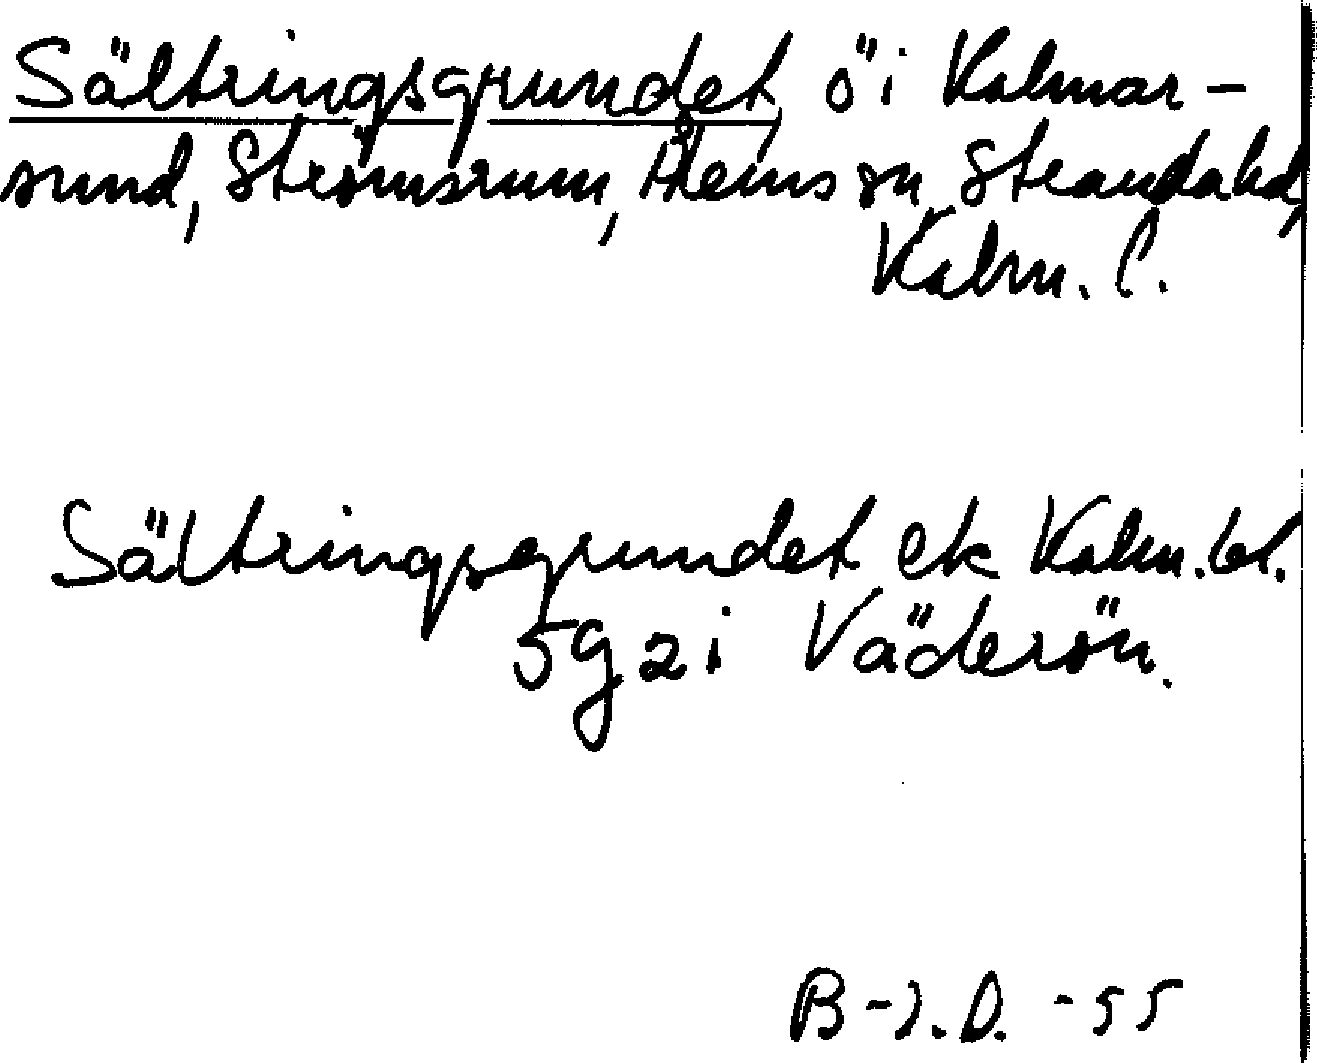 Sältringsgrundet, ö i Kalmar-
sund, Strömsrum, Ålems sn, Stranda hd,
Kalm. l.
Sältringsgrundet ek Kalm. bl.
5g2i Väderön.
B-J.D. -55